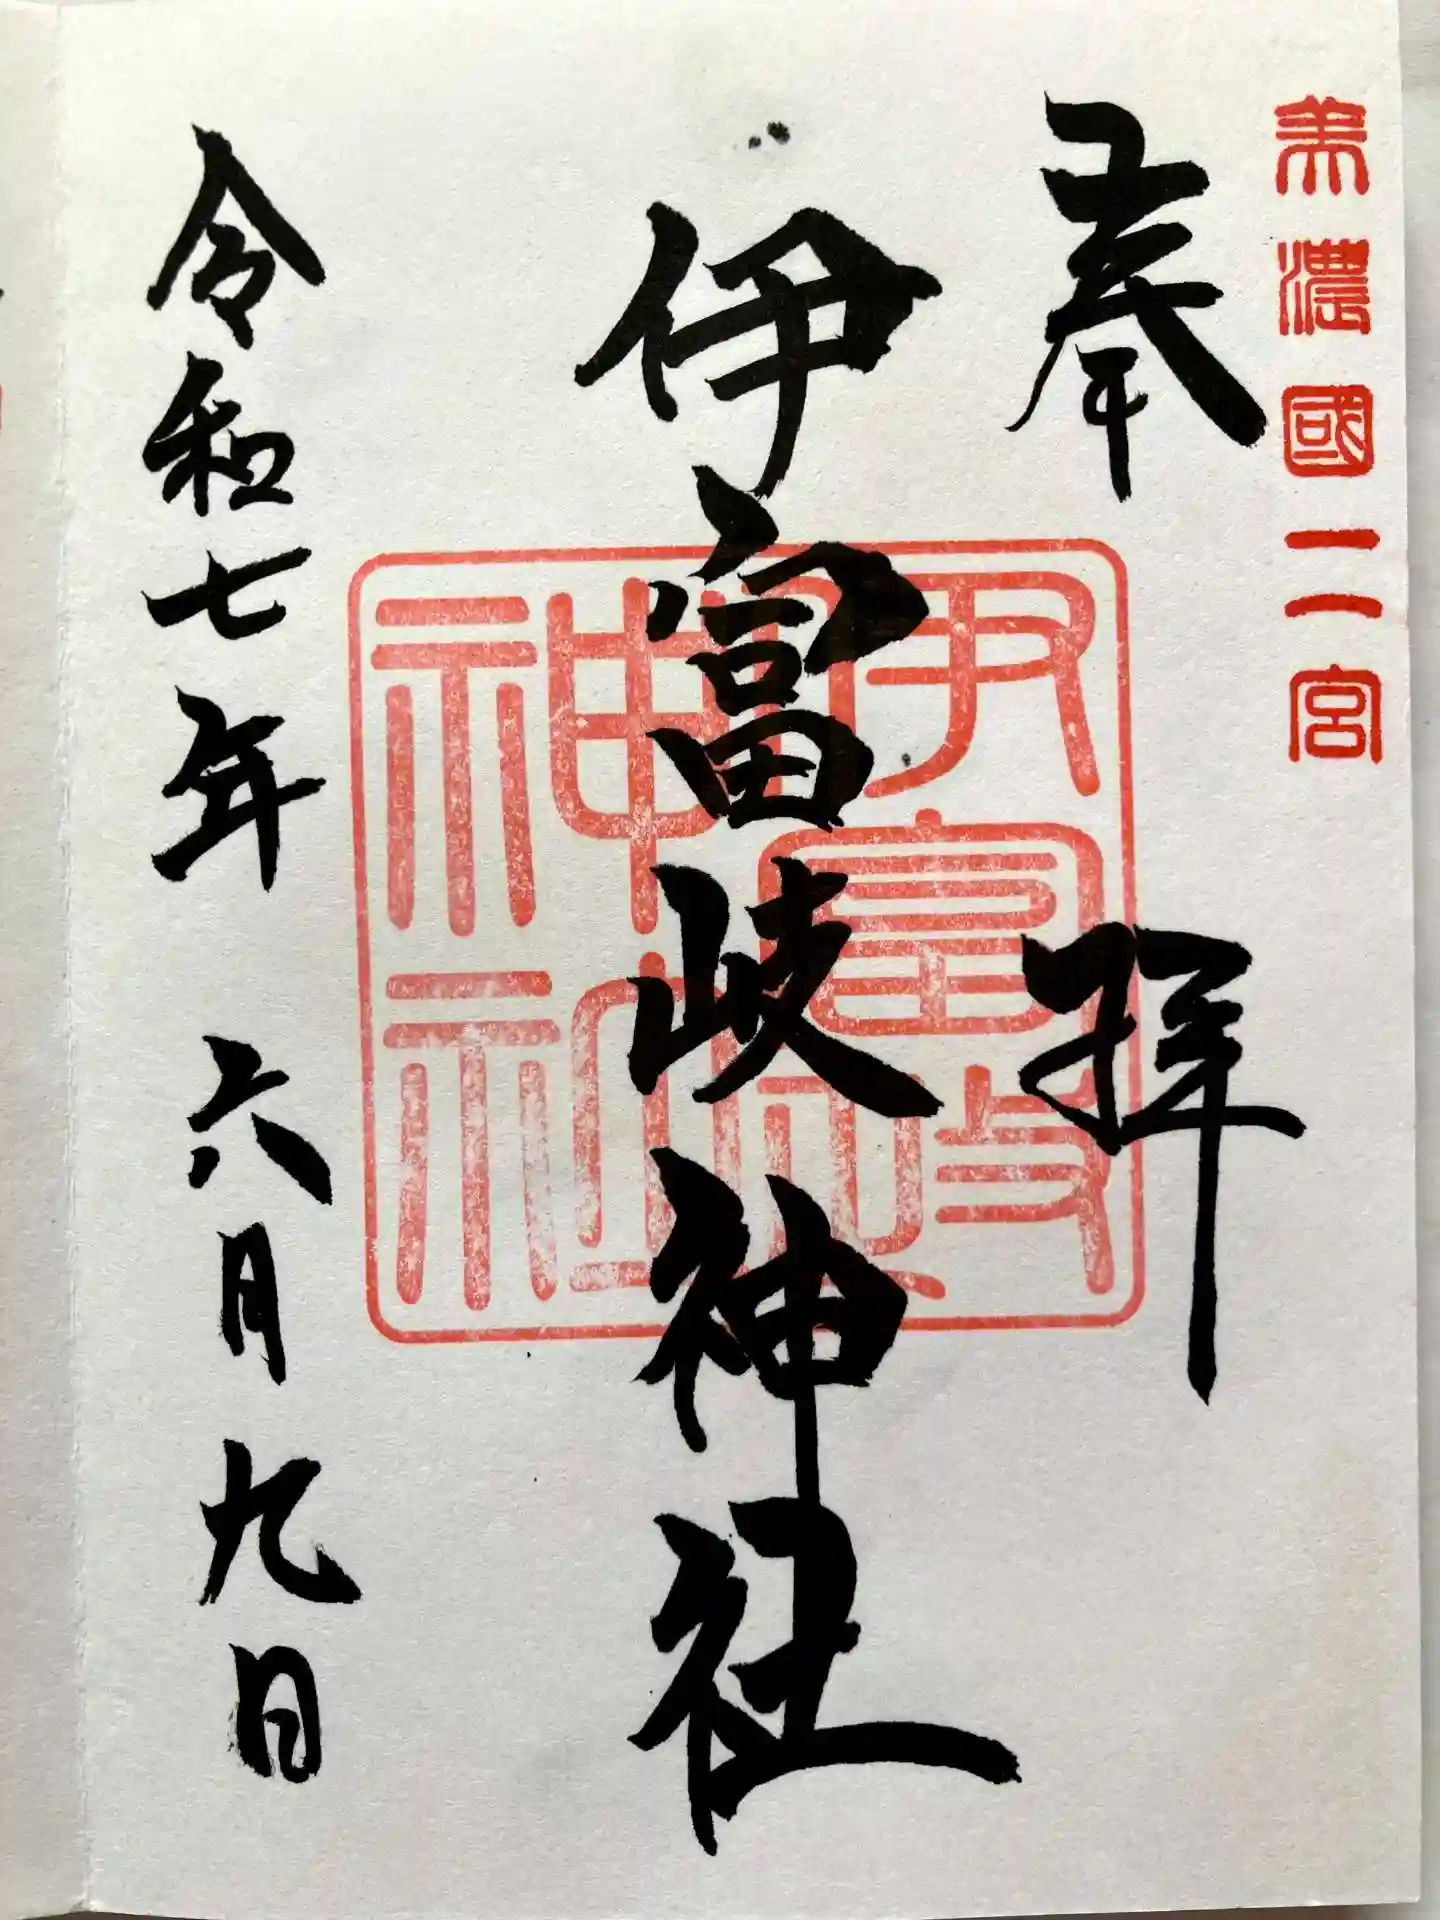 美濃國二宮
奉拝
伊富岐神社
伊富岐神社
令和七年六月九日